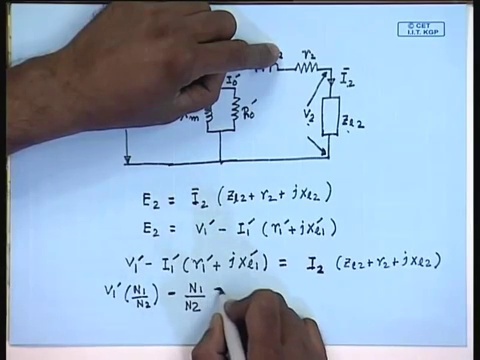 © CET
I.I.T. KGP
r₂
I₀′
Ī₂
R₀′
V₂
Z_{l2}
E₂ = Ī₂ (Z_{l2} + r₂ + jx_{l2})
E₂ = V₁′ − I₁′ (r₁′ + jx_{l1}′)
V₁′ − I₁′ (r₁′ + jx_{l1}′) = I₂ (Z_{l2} + r₂ + jx_{l2})
V₁′ (N₁/N₂) − N₁/N₂